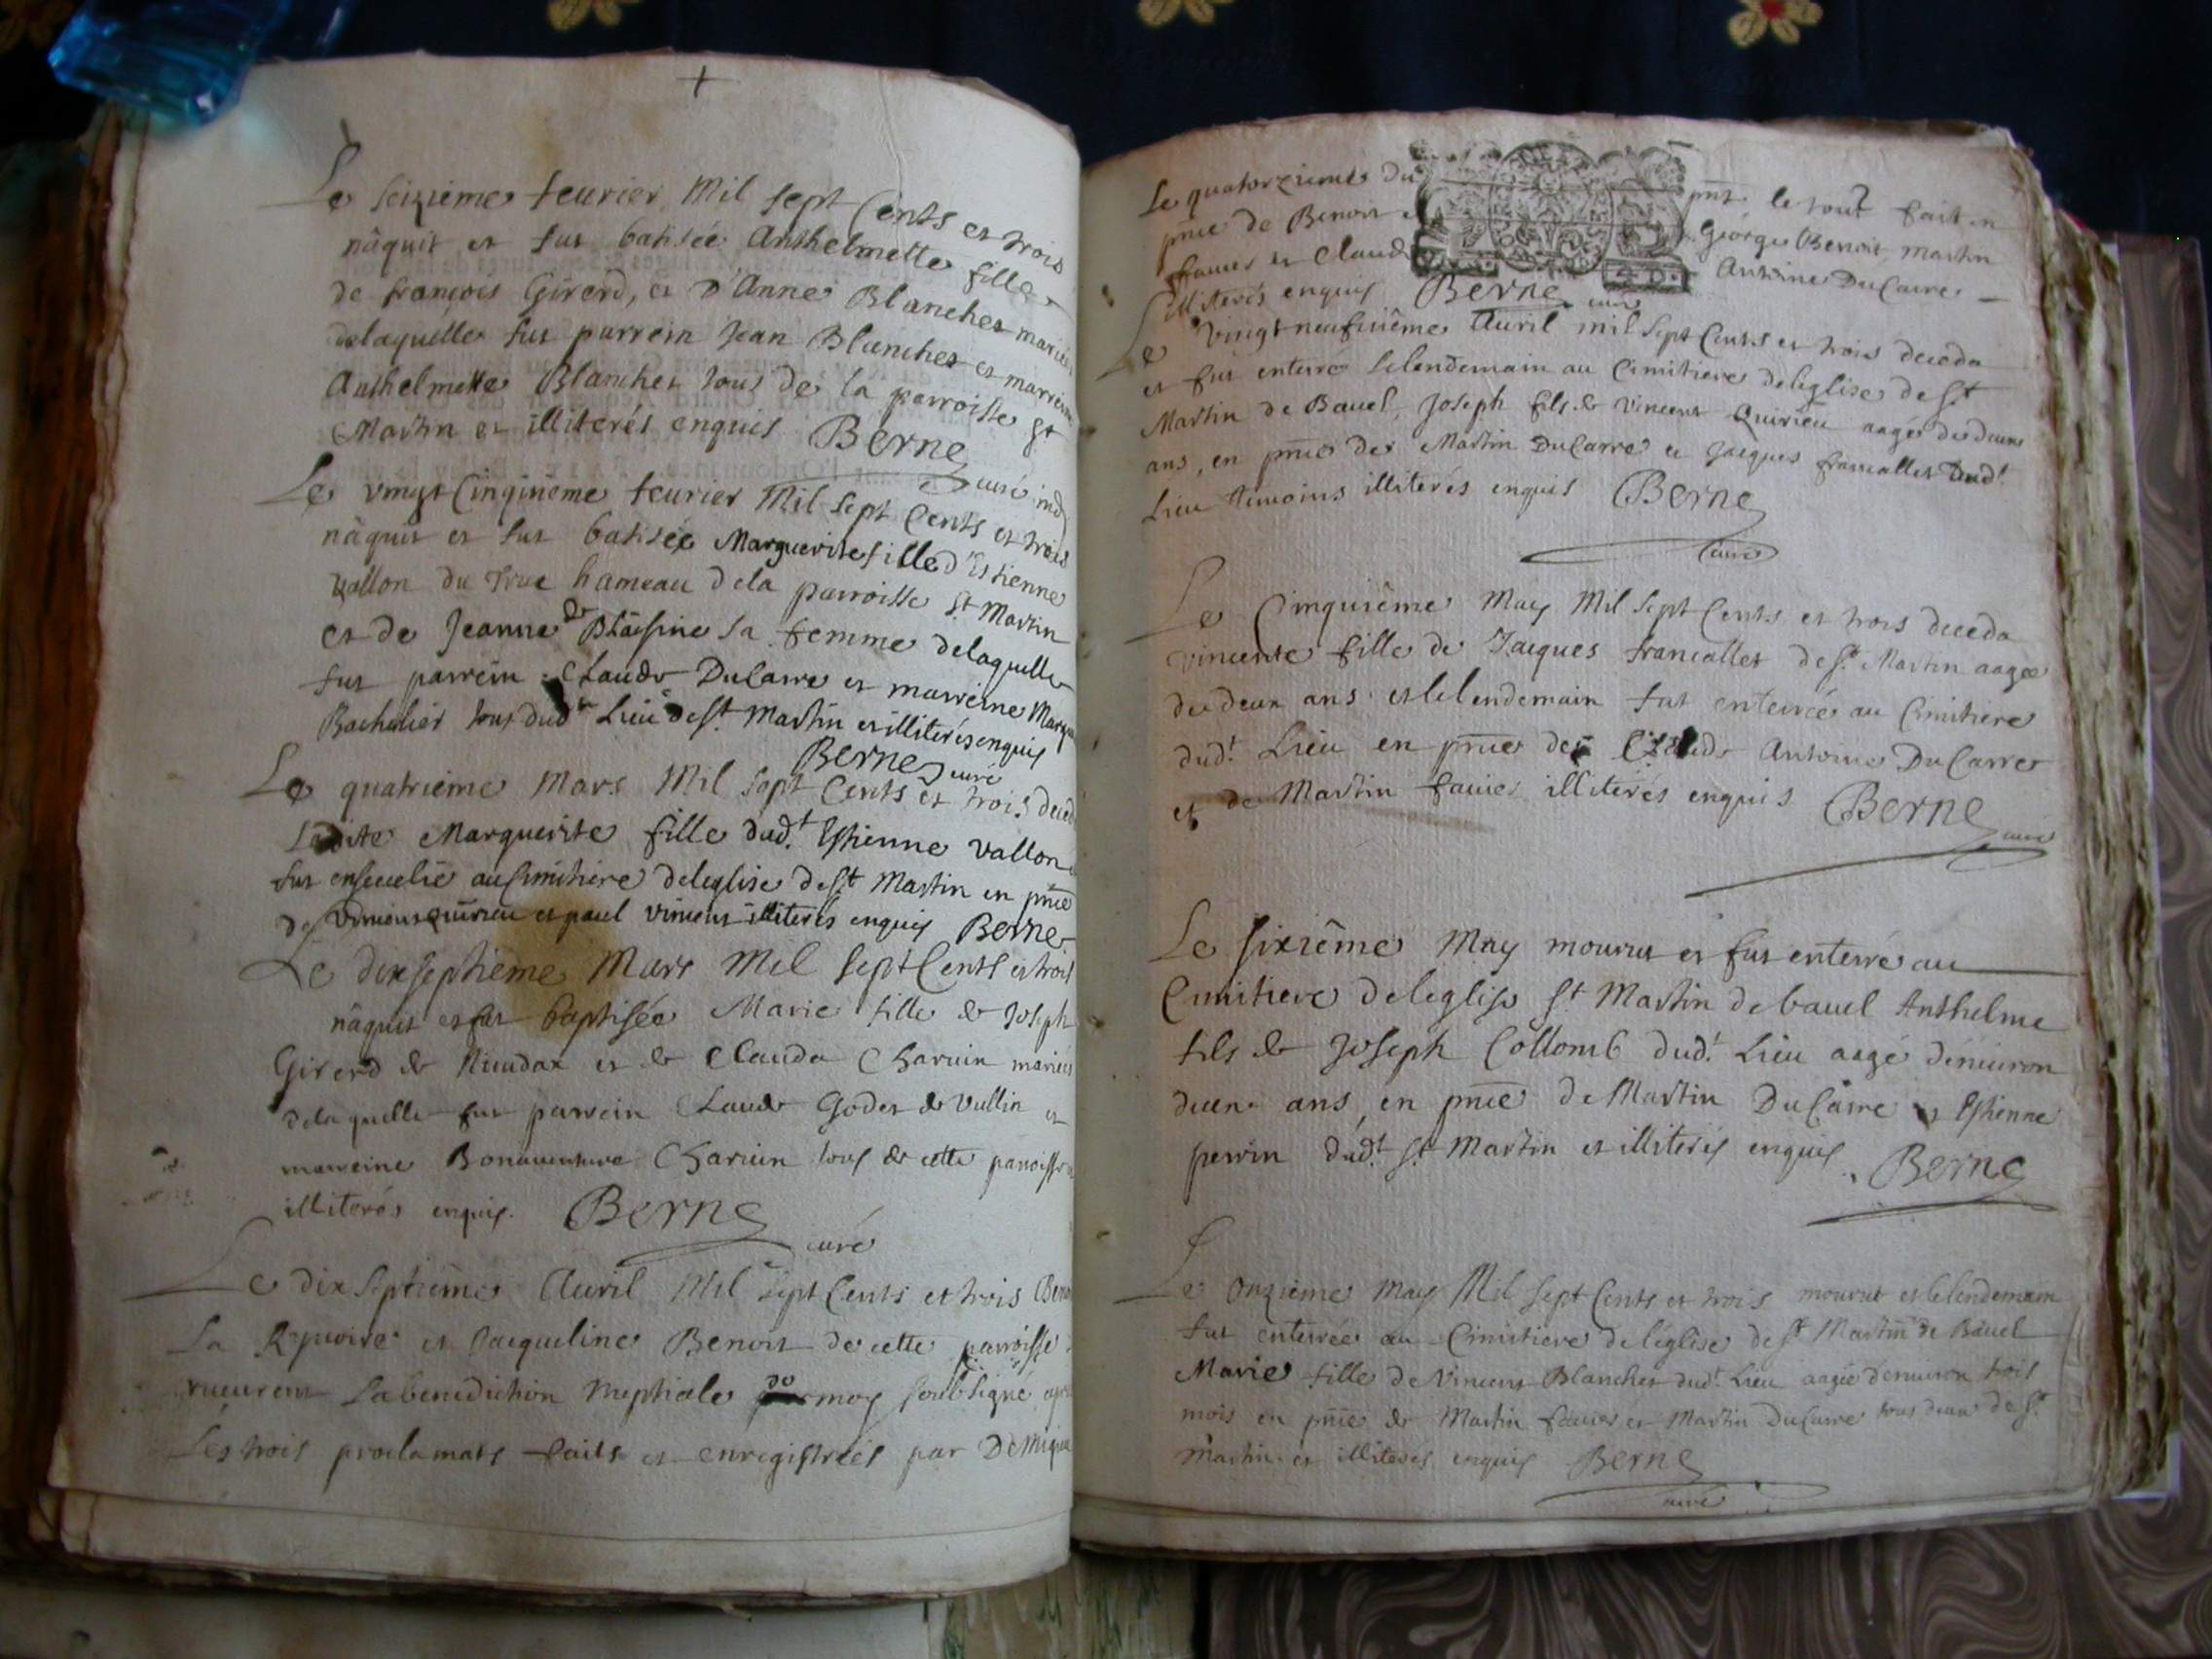 Le seizieme feurier Mil sept Cents et trois
nâquit et fut batisée Anthelmette fille
de françois Girerd, et D'Anne Blanchet mariés
delaquelle fut parrein Jean Blanchet et marreine
Anthelmette Blanchet tous de la parroisse St
Martin et illiterés enquis Berne curé
Le vingt Cinqieme feurier Mil sept Cents et trois
nâquit et fut batisée Marguerite fille d'Estienne
vallon du hameau dela parroisse St Martin
et de Jeanne de Blaisine sa femme delaquelle
fut parrein Claude DuCarre et marreine
Bachelier tous dudt Lieu de St Martin et illiterés enquis
Berne curé
Le quatrieme Mars Mil sept Cents et trois
Ladite Marguerite fille dudt Estienne vallon
fut enseuelie au Cimitiere deleglise de St Martin en pnce
de vincent quirieu et paul vincent illiterés enquis Berne
Le dixseptieme Mars Mil sept Cents et trois
nâquit et fut baptisée Marie fille de Joseph
Girerd de et de Clauda Charuin mariés
delaquelle fut parrein Claude Godet de Vullin et
marreine Bonauenture Charuin tous de cette parroisse
illiterés enquis. Berne
curé
Le dix Septieme Auril Mil sept Cents et trois
La et Jacqueline Benoit de cette parroisse
La benediction Nuptiale de moy soubsigné
Les trois proclamats faits et enregistrées par
Le quatorzieme du pnt. le tout fait en
pnce de Benoit George Benoit, martin
fauier et Claude Antoine DuCarre
illiterés enquis Berne curé
Le vingt neufuiême Auril mil sept Cents et trois deceda
et fut enterré le lendemain au Cimitiere deleglise de St
Martin de Bauel, Joseph fils de vincent Quirieu aage de deux
ans, en pnce de Martin DuCarre et Jacques francallet Dudt
Lieu temoins illiterés enquis Berne
curé
Le Cinquiême May Mil sept Cents et trois deceda
vincente fille de Jacques francallet de St Martin aagée
de deux ans et le lendemain fut enterrée au Cimitiere
dudt Lieu en pnce de Claude Antoine DuCarre
et de Martin fauier illiterés enquis Berne
curé
Le sixiême May mourut et fut enterré au
Cimitiere deleglise St Martin de bauel Anthelme
fils de Joseph Collomb dudt Lieu aagé d'enuiron
deux ans, en pnce de Martin DuCarre et Estienne
perrin dudt St Martin et illiterés enquis
Berne
Le Onzieme May Mil sept Cents et trois mourut et lelendemain
fut enterrée au Cimitiere de léglise de St Martin de Bauel
Marie fille de Vincent Blanchet dudt Lieu aagée d'enuiron trois
mois en pnce de Martin fauier et Martin DuCarre tous deux de St
Martin et illiterés enquis Berne
curé